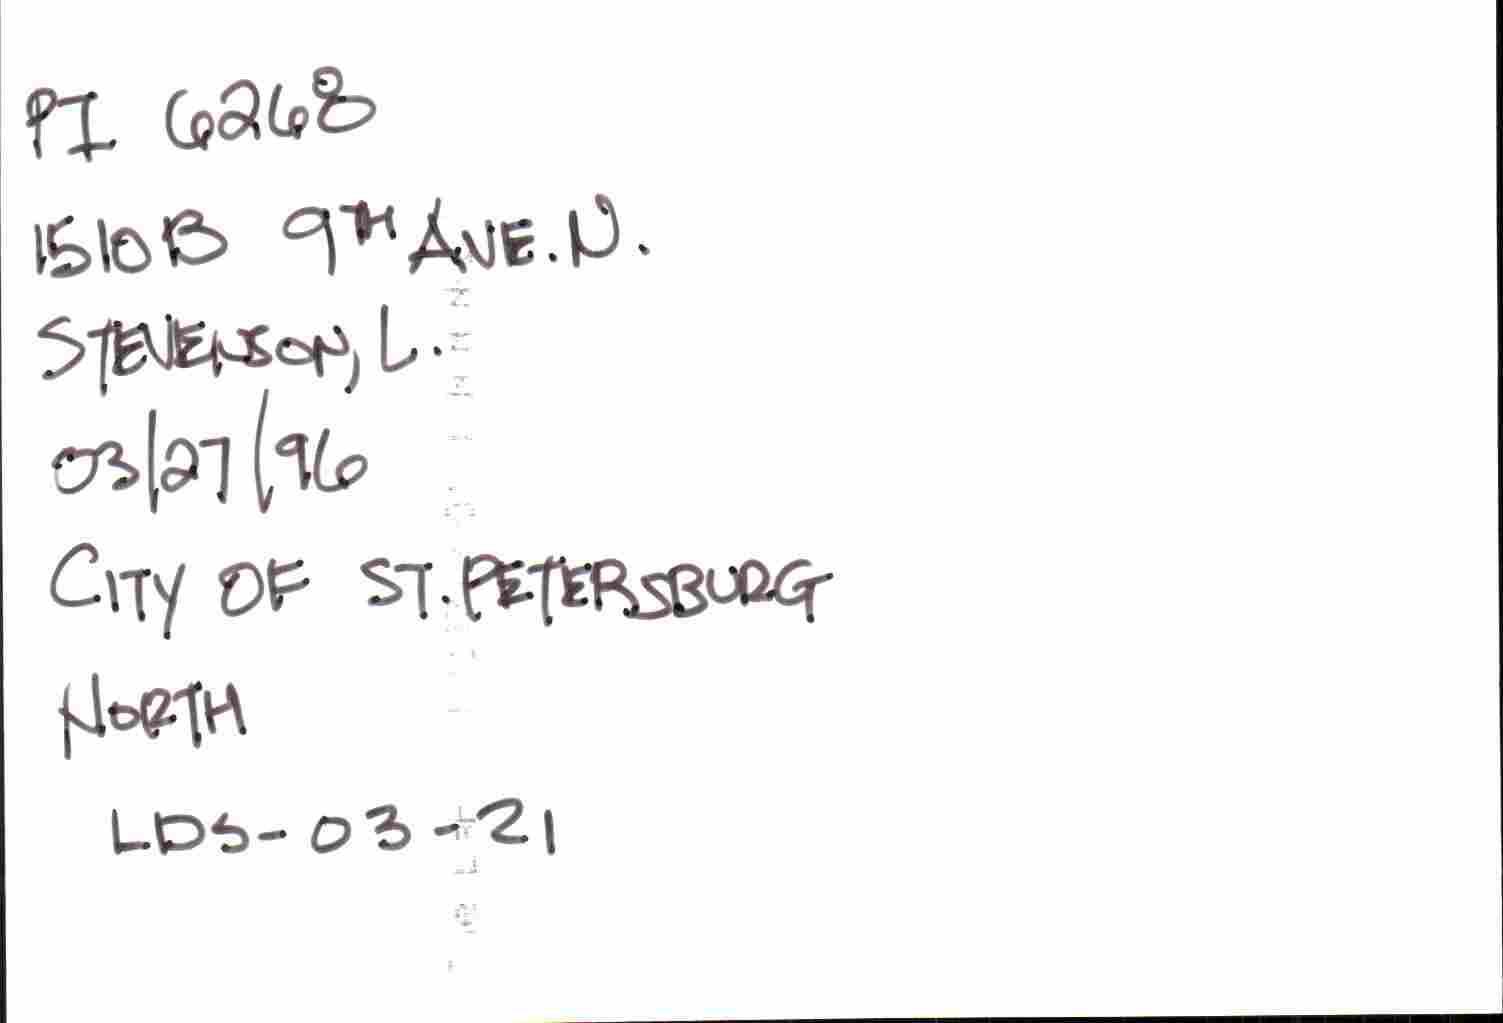 PI 6268
1510B 9TH AVE. N.
STEVENSON, L.
03/27/96
CITY OF ST. PETERSBURG
NORTH
LDS-03-21